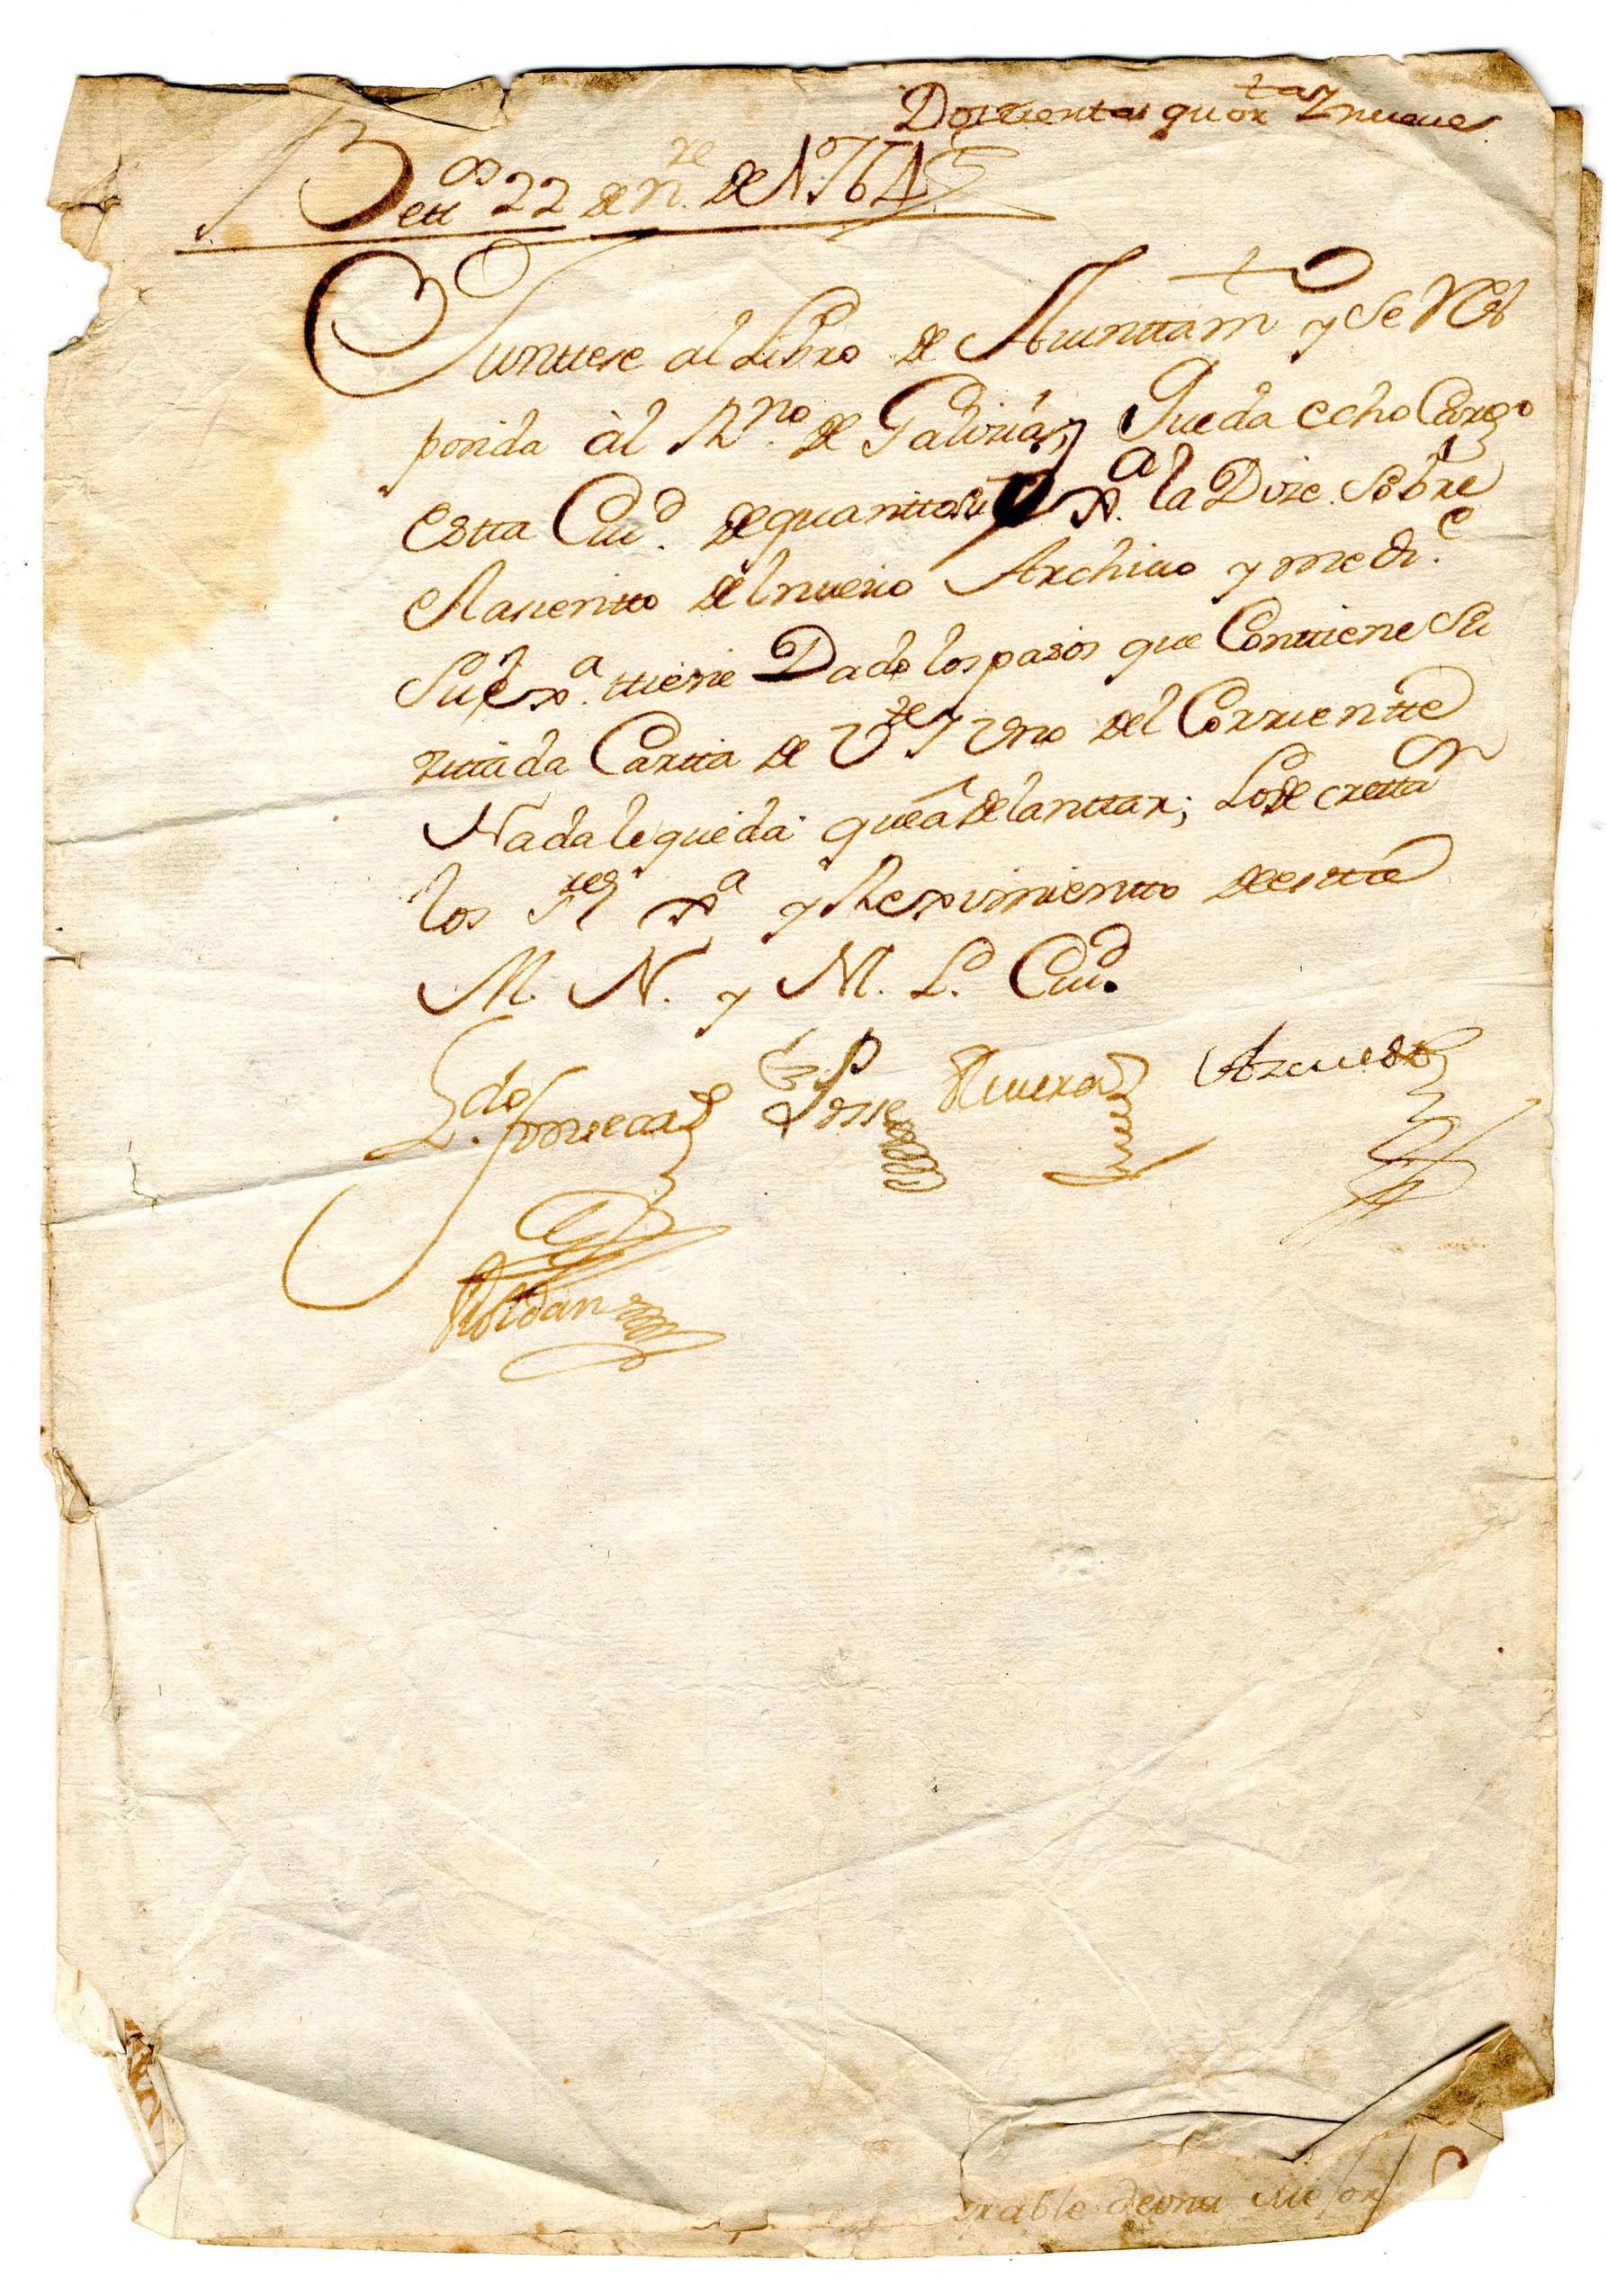 Doszientas quar.ta y nueve
Bett.os 22 de N.re de 1764
Junttese al Libro de Aiunttam.to y se Res
ponda àl R.no de Galizia, Queda echo Cargo
estta Ciu.d de quantto su Ex.a la Dize sobre
el asientto del nuevo Archivo y medi.e
su Ex.a ttiene Dado los pasos que Conttiene su
zittada Cartta de V.te y Uno del Corrientte
Nada le queda que âdelanttar; Lo decretta.n
los S.res X.a y Reximientto de estta
M. N. y M. L. Ciu.d
L.do fonseca Posse Rivera
Roldan
rable de una mejor